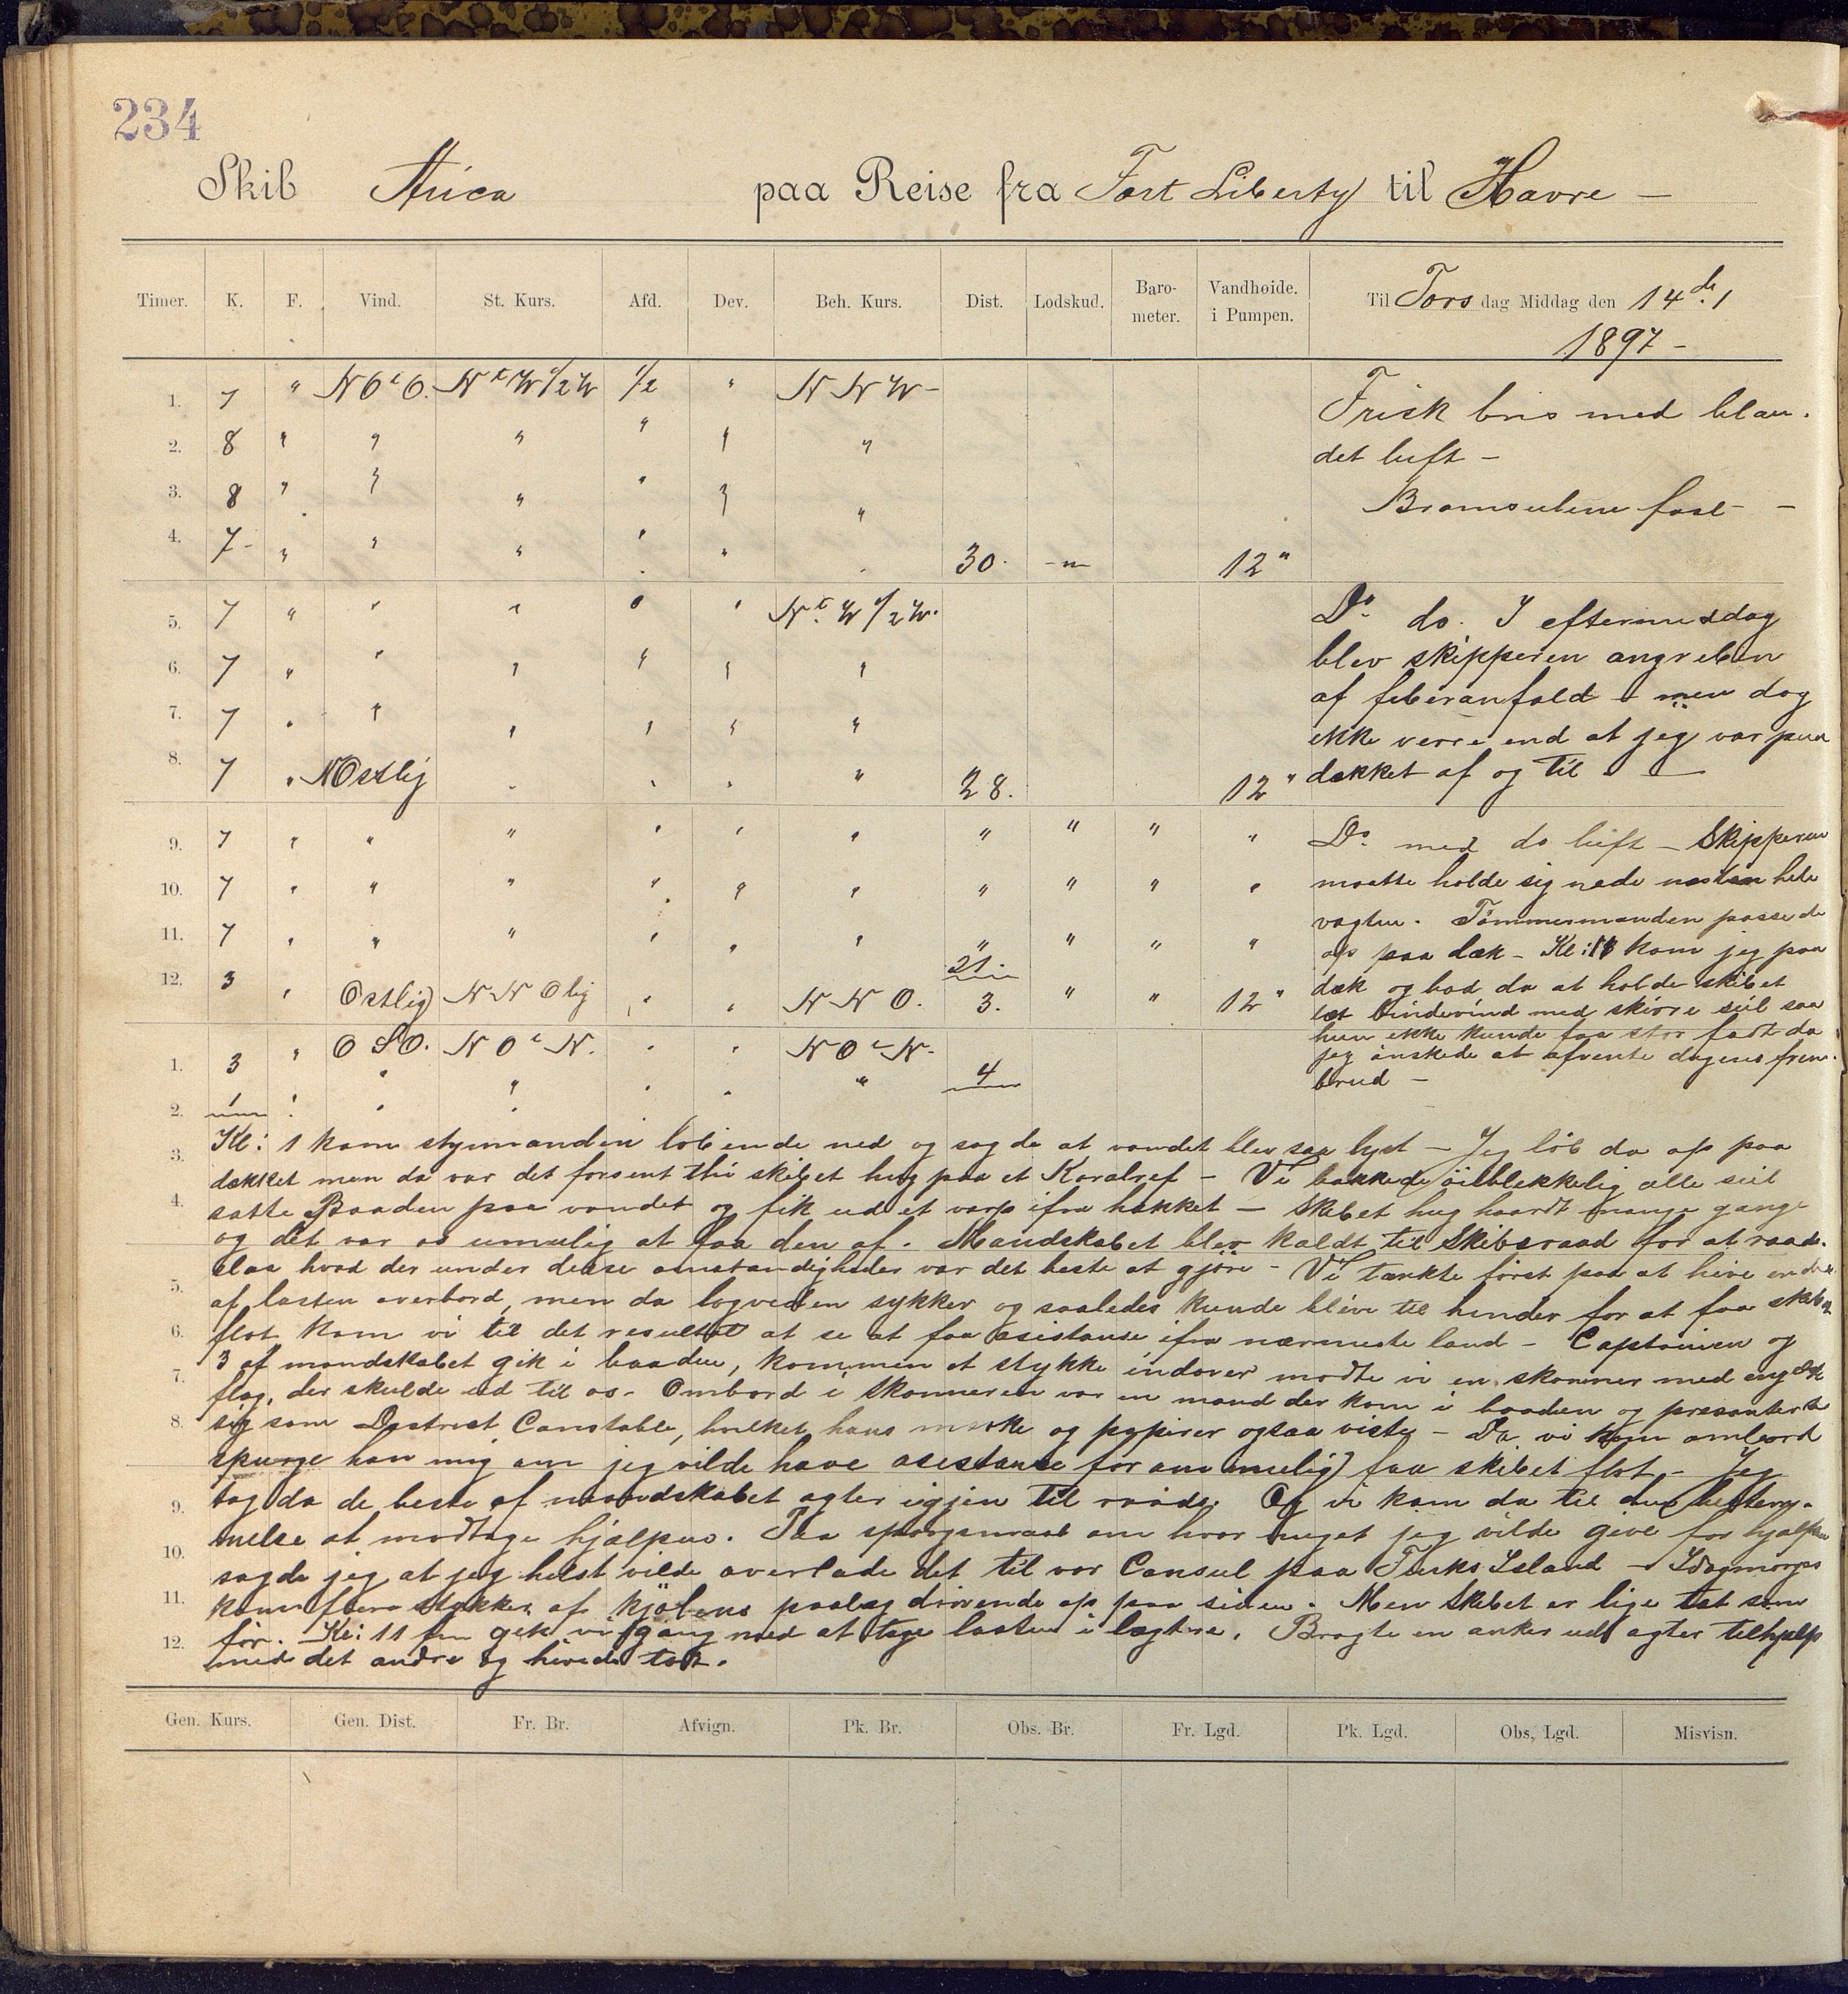 234
Skib Arica paa Reise fra Fort Liberty til Havre —
Timer. K. F. Vind. St. Kurs. Afd. Dev. Beh. Kurs. Dist. Lodskud. Baro-meter. Vandhøide. i Pumpen. Til Tors dag Middag den 14de 1
1897 –
1. 7 " NOtO. NtW 1/2 W 1/2 " NNW –
2. 8 " " " " " "
3. 8 " " " " " "
4. 7 – " " " " " 30. – " – 12 "
5. 7 " " " " " Nt W 1/2 W.
6. 7 " " " " " "
7. 7 " " " " " "
8. 7 " NOstlig " " " " 28. 12 "
9. 7 " " " " " " " " " "
10. 7 " " " " " " " " " "
11. 7 " " " " " " " " " "
21.
12. 3 " Ostlig NNOlig " " NNO. 3. " " 12 "
1. 3 " OSO. NOtN. " " NOtN.
4
2. 1 " " " " " "
Frisk bris med blan-
det luft –
Bramseilene fast –
Do do. I eftermiddag
blev skipperen angreben
af feberanfald – men dog
ikke verre end at jeg var paa
dækket af og til –
Do med do luft – Skipperen
maatte holde sig nede næsten hele
vagten. Tömmermanden passede
op paa dæk – Kl: 11 kom jeg paa
dæk og bad da at holde skibet
tæt bindevind med skivre seil saa
hun ikke kunde faa stor fart da
jeg önskede at afvente dagens frem-
brud –
3. Kl: 1 kom styrmanden löbende ned og sagde at vandet blev saa lyst – Jeg löb da op paa
dækket men da var det forsent thi skibet hug paa et Koralref – Vi bakkede öiblekkelig alle seil
4. satte Baaden paa vandet og fik ud et varp ifra hækket – Skibet hug haardt mange gange
og det var os umulig at faa den af. Mandskabet blev kaldt til Skibsraad for at raad-
5. slaa hvad der under disse omstændigheder var det beste at gjöre – Vi tænkte först paa at hive en del
af lasten overbord, men da logveden sykker og saaledes kunde blive til hinder for at faa skibet
6. flot kom vi til det resultat at se at faa asistanse ifra nærmeste land – Captainen og
7. 3 af mandskabet gik i baaden, kommen et stykke indover modte vi en skonner med engelsk
flag, der skulde ud til os – Ombord i Skonneren var en mand der kom i baaden og presenterte
8. sig som District Constable, hvilket hans merke og papirer ogsaa viste – Da vi kom ombord
spurge han mig om jeg vilde have asistanse for om mulig faa skibet flot – Jeg
9. tog da de beste af mandskabet agter igjen til raads. Og vi kom da til den bestem-
melse at modtage hjælpen. Paa spörgsmaal om hvor meget jeg vilde give for hjælpen
10. sagde jeg at jeg helst vilde overlade det til vor Consul paa Turks Island – Idagmorges
11. kom flere stykker af kjölens paalæg drivende op paa siden. Men Skibet er lige tæt som
12. för. Kl: 11 fm gik vi igang med at tage lasten i lægtere. Bragte en anker ud agter tilhjælp
med det andre og hivede tæt.
Gen. Kurs. Gen. Dist. Fr. Br. Afvign. Pk. Br. Obs. Br. Fr. Lgd. Pk. Lgd. Obs, Lgd. Misvisn.